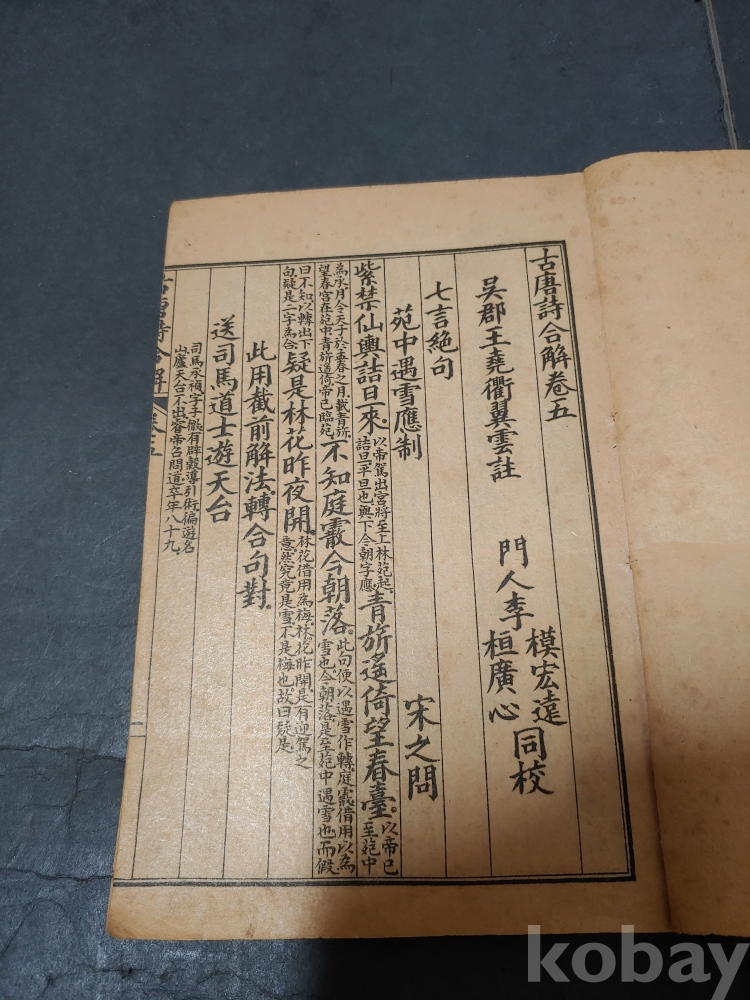 古唐詩合解卷五
吳郡王堯衢翼雲註
門人李
模宏遠
桓廣心
同校
七言絕句
苑中遇雪應制
宋之問
紫禁仙輿詰旦來
以帝駕出宮將至上林苑起
詰旦平旦也輿下今朝字應
青旂遙倚望春臺
以帝已至苑中
為承月令天子於孟春之月載青旂
望春宮在苑中青旂遙倚帝已臨苑
不知庭霰今朝落
此句便以遇雪作轉庭霰借用以為
雪也今朝落是至苑中遇雪也而假
曰不知以轉出下
句疑是二字為合
疑是林花昨夜開
林花借用為梅林花昨開是有迎駕之
意然究竟是雪不是梅也故曰疑是
此用截前解法轉合句對
送司馬道士遊天台
司馬承禎字子微有辟穀導引術徧遊名
山廬天台不出睿帝召問道卒年八十九
古唐詩合解 卷五
kobay